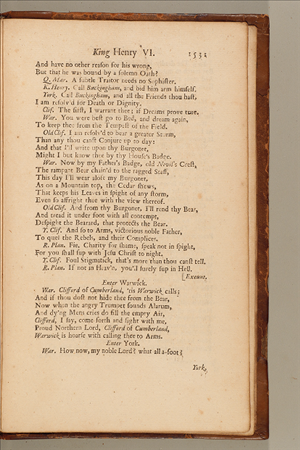 King Henry VI. 1531
And have no other reason for his wrong,
But that he was bound by a solemn Oath?
Q. Mar. A subtle Traitor needs no Sophister.
K. Henry. Call Buckingham, and bid him arm himself.
York. Call Buckingham, and all the Friends thou hast,
I am resolv'd for Death or Dignity.
Clif. The first, I warrant thee; if Dreams prove true.
War. You were best go to Bed, and dream again,
To keep thee from the Tempest of the Field.
Old Clif. I am resolv'd to bear a greater Storm,
Than any thou canst Conjure up to day:
And that I'll write upon thy Burgonet,
Might I but know thee by thy House's Badge.
War. Now by my Father's Badge, old Nevil's Crest,
The rampant Bear chain'd to the ragged Staff,
This day I'll wear aloft my Burgonet,
As on a Mountain top, the Cedar shews,
That keeps his Leaves in spight of any storm,
Even to affright thee with the view thereof.
Old Clif. And from thy Burgonet, I'll rend thy Bear,
And tread it under foot with all contempt,
Despight the Bearard, that protects the Bear.
Y. Clif. And so to Arms, victorious noble Father,
To quell the Rebels, and their Complices.
R. Plan. Fie, Charity for shame, speak not in spight,
For you shall sup with Jesu Christ to night.
Y. Clif. Foul Stigmatick, that's more than thou canst tell.
R. Plan. If not in Heav'n, you'll surely sup in Hell.
[Exeunt.
Enter Warwick.
War. Clifford of Cumberland, 'tis Warwick calls;
And if thou dost not hide thee from the Bear,
Now when the angry Trumpet sounds Alarum,
And dying Mens cries do fill the empty Air,
Clifford, I say, come forth and fight with me,
Proud Northern Lord, Clifford of Cumberland,
Warwick is hoarse with calling thee to Arms.
Enter York.
War. How now, my noble Lord? what all a-foot?
York.